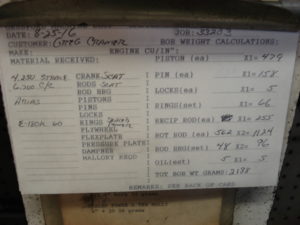 DATE: 8-25-16 JOB: 33203
CUSTOMER: Greg Cramer BOB WEIGHT CALCULATIONS:
MAKE: ENGINE CU/IN":
MATERIAL RECEIVED: PISTON (ea) X1= 479
4.250 STROKE CRANK Scat PIN (ea) X1= 158
6.700 C/C RODS Scat LOCKS(ea) X1= 5
ROD BRG RINGS(set) X1= 66
PISTONS
PINS RECIP ROD(ea) X1= 255
LOCKS
RINGS ROT ROD (ea) 562 X2= 1124
FLYWHEEL ROD BRG(set) 48 X2= 96
FLEXPLATE
PRESSURE PLATE OIL(est) 5 X1= 5
DAMPNER
MALLORY REQD TOT BOB WT GRAMS: 2188
REMARKS: SEE BACK OF CARD